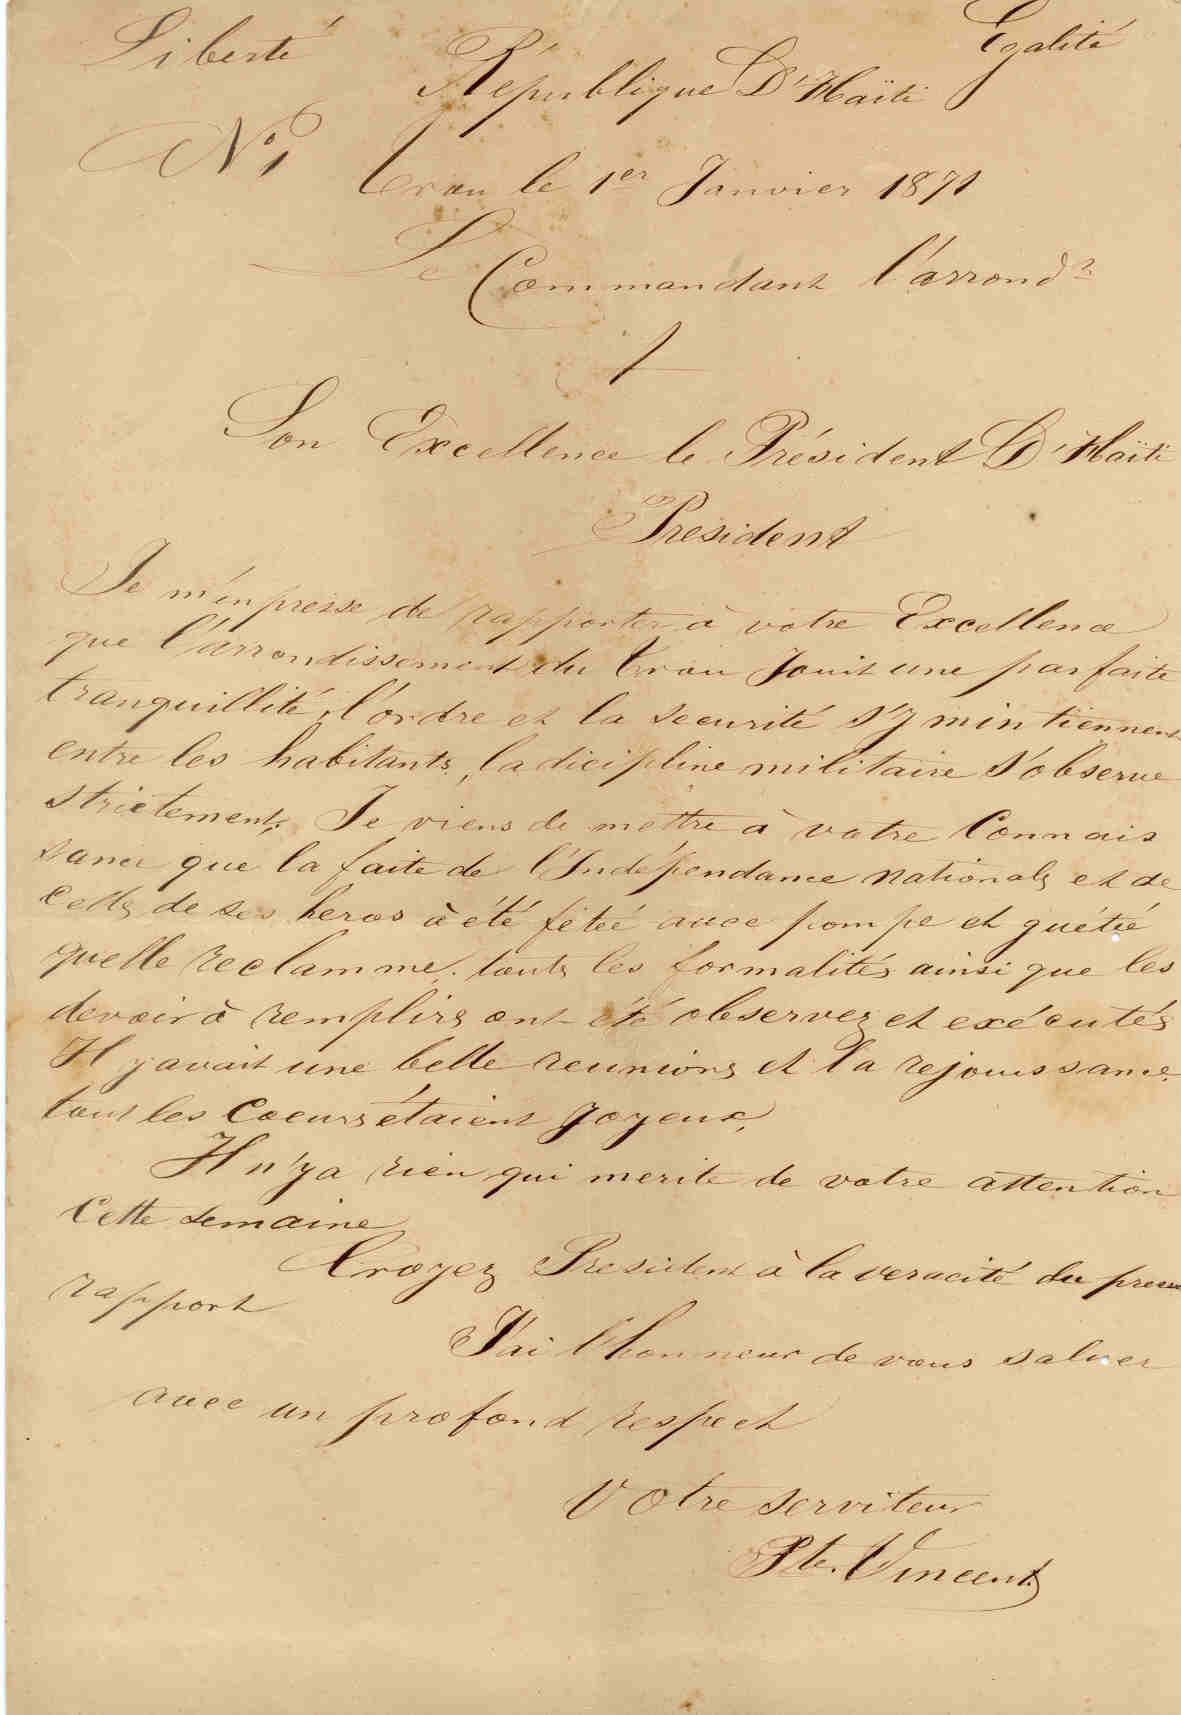 Liberté Egalité
République D'Haïti
No 1
Trou le 1er Janvier 1871
Le Commandant l'arrondt
A
Son Excellence le Président D'Haïti
President
Je m'enpresse de rapporter à votre Excellence
que l'arrondissement du Trou Jouit une parfaite
tranquillité, l'ordre et la securité s'y mintiennent
entre les habitants, la dicipline militaire s'observe
strictement. Je viens de mettre à votre Connais
sance que la faite de l'Indépendance nationale et de
Celle de ses heros à été fêteé avec pompe et guétié
quelle reclamme. touts les formalités ainsi que les
devoir à remplirs ont été observez et exécutés
Il yavait une belle reunions et la rejouissance.
tout les Coeurs étaient Joyeux,
Il n'ya rien qui merite de votre attention
Cette semaine
Croyez President à la veracité du
rapport
J'ai l'honneur de vous saluer
avec un profond respect
Votre serviteur
Pte. Vincent